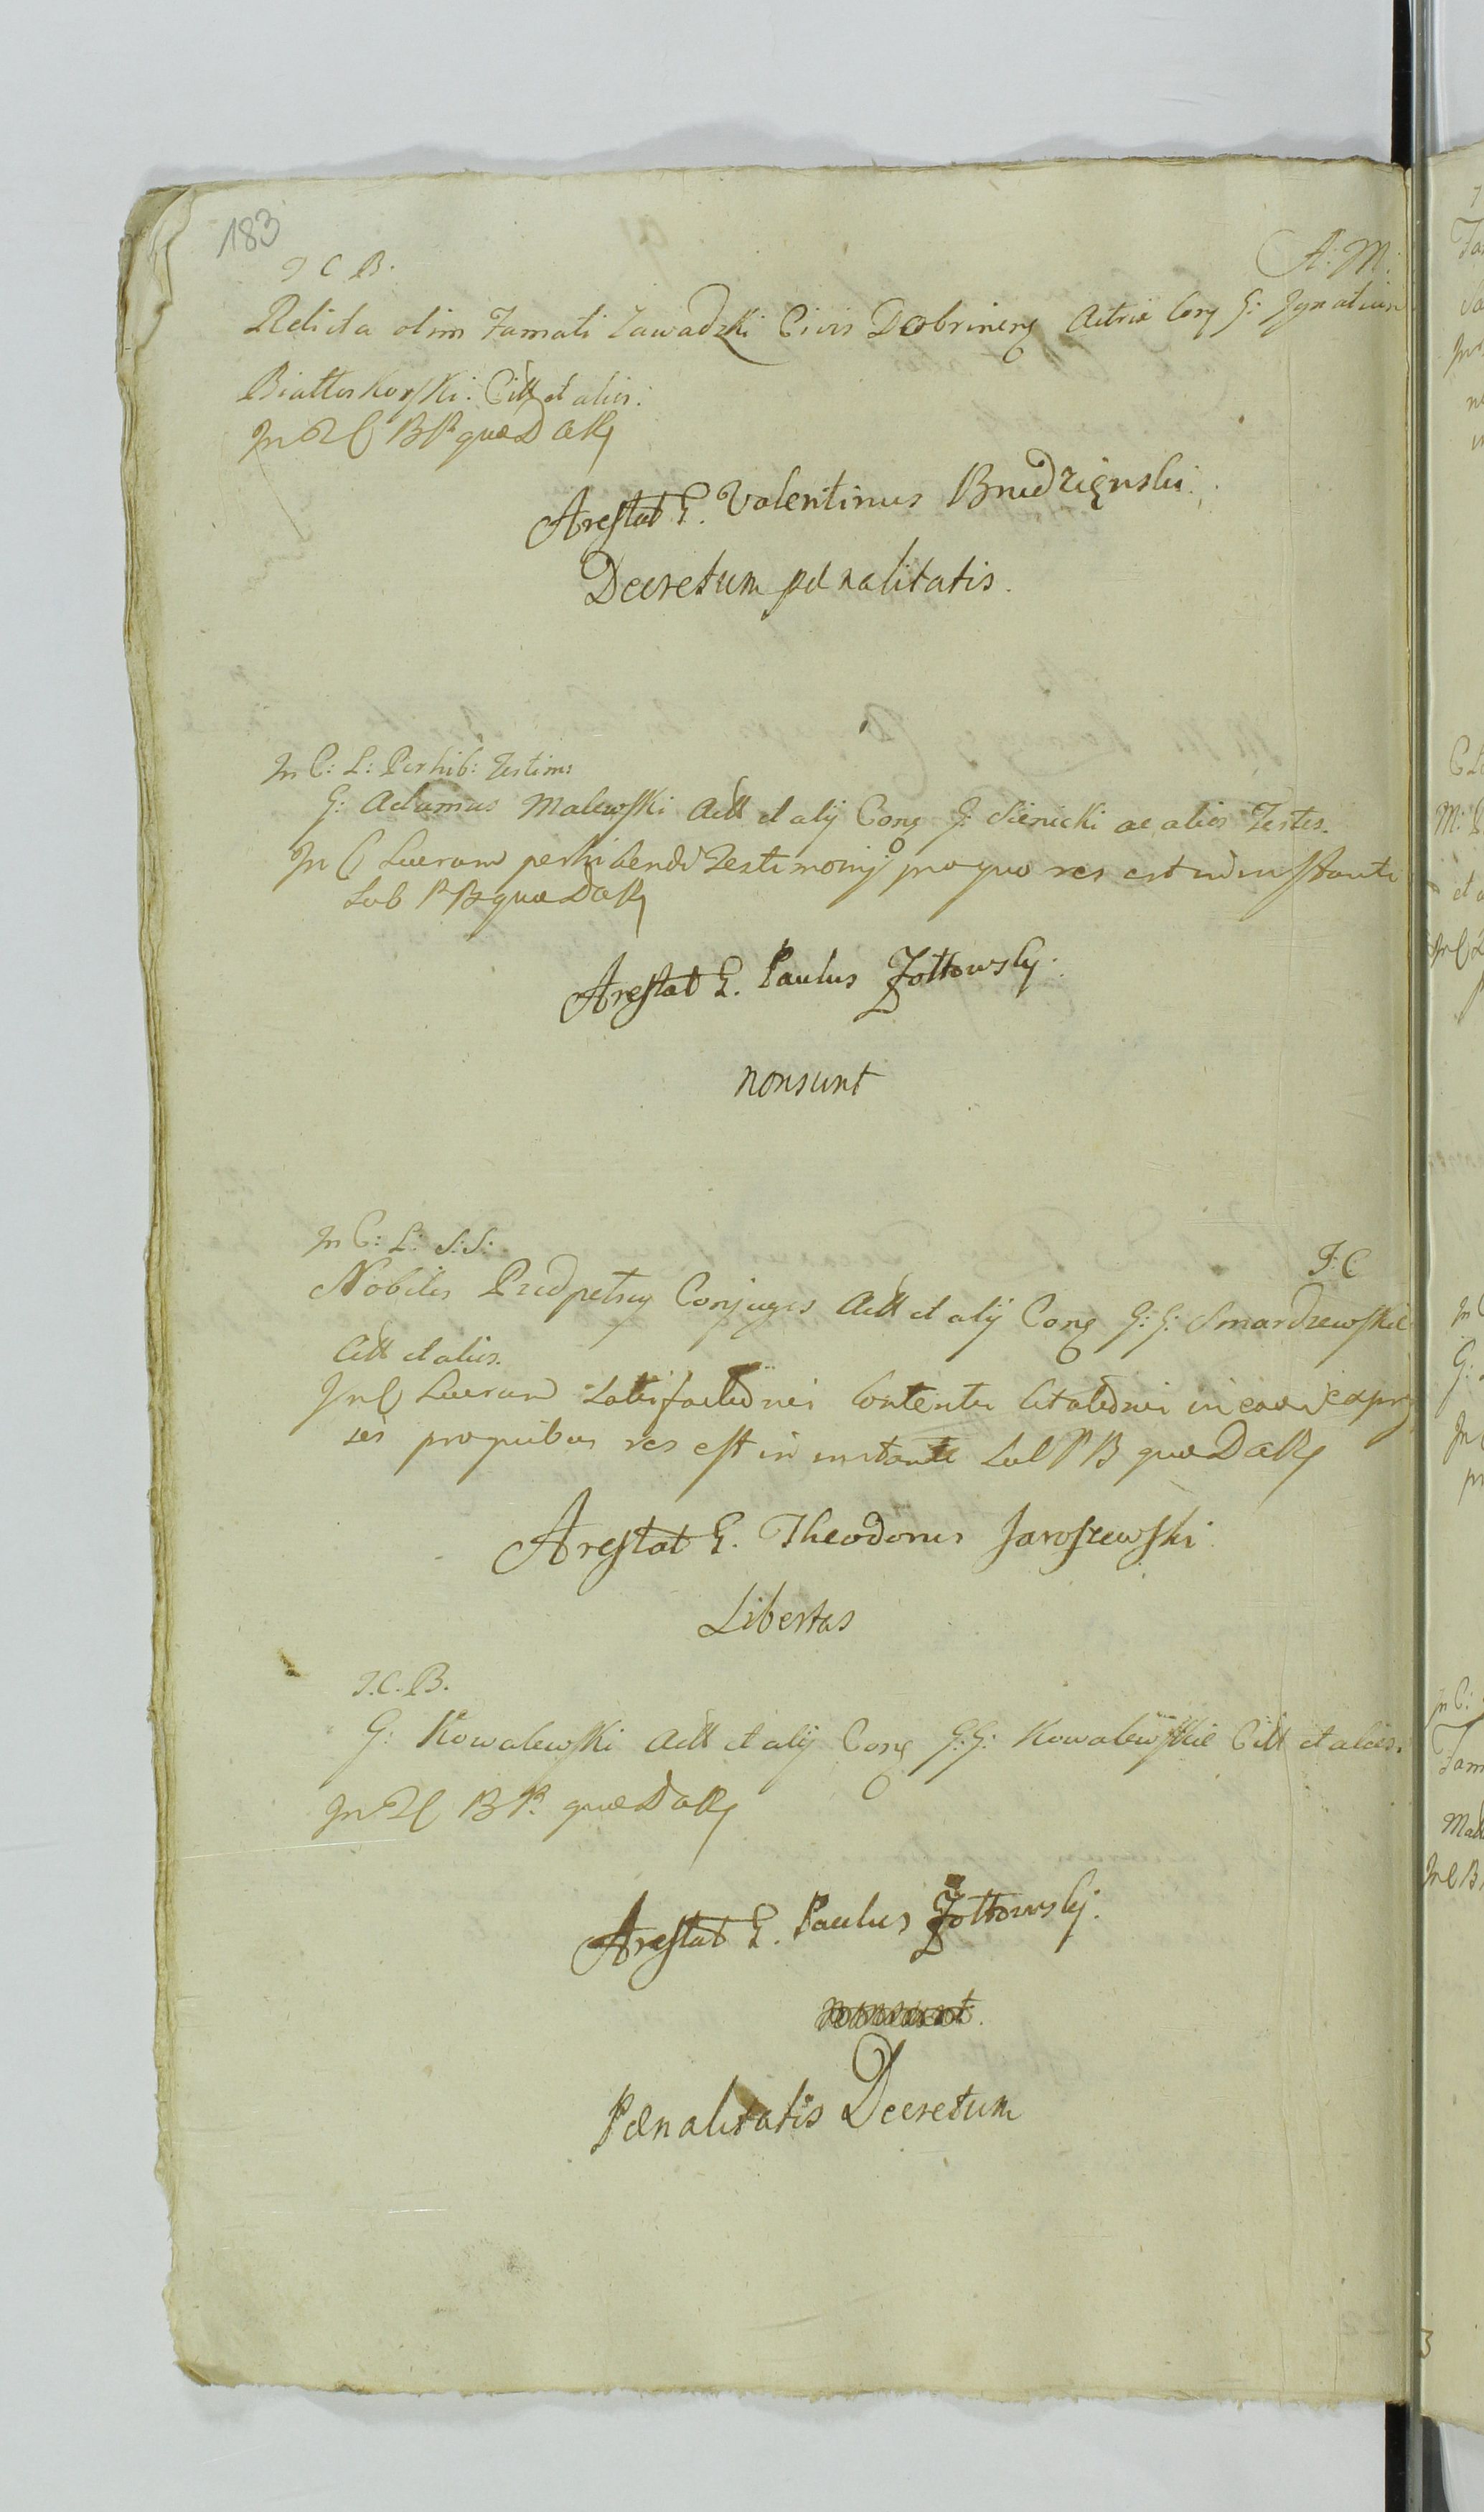 183
J C B.
A: M:
Relicta olim Famati Zawadzki Civis Dobrinens Actrix Cong G: Ignatium
Białłoskorski: Citt et alios:
In Tl BP quæ D aRg
Arestat G. Valentinus Brudzięnski.
Decretum pænalitatis.
In C: L: Perhib: Testim:
G: Adamus Malewski Actt et alij Cong G: Sienicki ac alios Testes.
In C Lucrum perhibendi Testimonij pro quo res est in instanti
sub PB quæ D aRg
Arestat G. Paulus Zołtowskj.
nonsunt
In C: L: S: S:
F: C
Nobiles Przedpetscy Conjuges Actt et alij Cong G: G: Smardzewskie
Citt et alios.
In C Lucrum Satisfactionei Contentu Citationei in eadem expres
ses pro quibus res est in instante sub PB quæ D aRg
Arestat G. Theodorus Jaroszewski.
Libertas
J. C. B.
G: Kowalewski Actt et alij Cong G: G: Kowalewskie Citt et alios.
In Tl BP. quæ D aRg
Arestat G. Paulus Zołtowskj.
nonsunt.
Pænalitatis Decretum